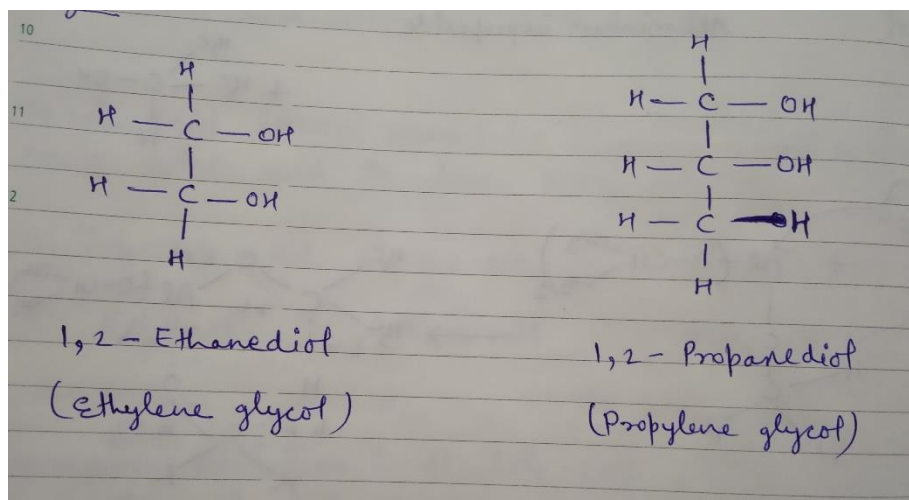 10
11
2
H
H — C — OH
H — C — OH
H
1,2 - Ethanediol
(Ethylene glycol)
H
H — C — OH
H — C — OH
H — C — H
H
1,2 - Propanediol
(Propylene glycol)